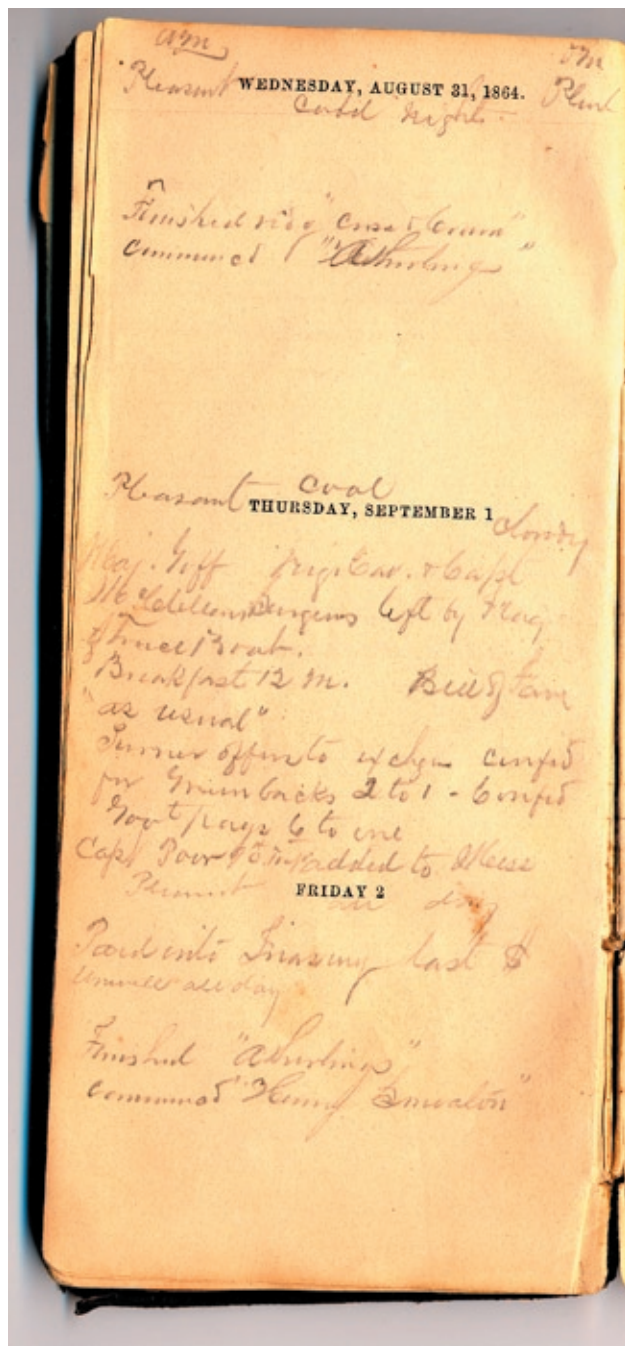 am
pm
Pleasant WEDNESDAY, AUGUST 31, 1864. Plsnt
Cold night.
Finished rdg "
commenced "Atherlings"
Pleasant Cool
THURSDAY, SEPTEMBER 1 cloudy
Maj. Goff Cav. & Capt
Surgeons left by Flag
of Truce Boat.
Breakfast 12 M. Bill of Fare
"as usual"
Turner offers to exchge confed
for Greenbacks 2 to 1 - Confed
Govt pays 6 to one
Capt Poor added to Mess
Pleasant all day
FRIDAY 2
Paid into Treasury last $
Unwell all day
Finished "Atherlings"
commencd "Henry